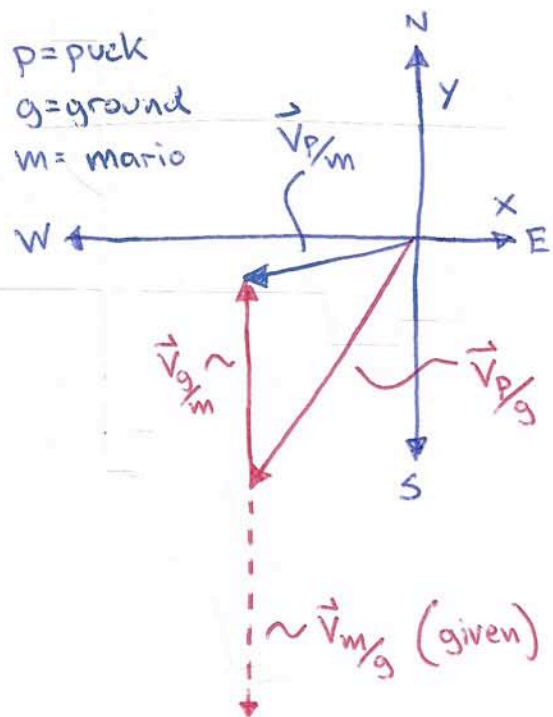 p=puck
g=ground
m= mario
N
y
V⃗p/m
W
x
E
V⃗g/m
V⃗p/g
S
~ V⃗m/g (given)